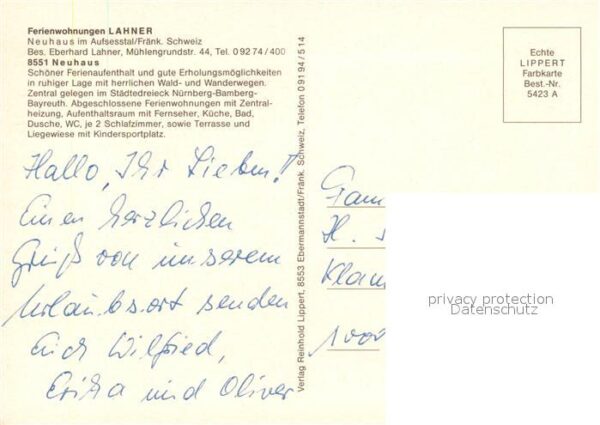 Ferienwohnungen LAHNER
Neuhaus im Aufsesstal/Fränk. Schweiz
Bes. Eberhard Lahner, Mühlengrundstr. 44, Tel. 0 92 74 / 400
8551 Neuhaus
Schöner Ferienaufenthalt und gute Erholungsmöglichkeiten
in ruhiger Lage mit herrlichen Wald- und Wanderwegen.
Zentral gelegen im Städtedreieck Nürnberg-Bamberg-
Bayreuth. Abgeschlossene Ferienwohnungen mit Zentral-
heizung, Aufenthaltsraum mit Fernseher, Küche, Bad,
Dusche, WC, je 2 Schlafzimmer, sowie Terrasse und
Liegewiese mit Kindersportplatz.
Hallo, Ihr Lieben!
Einen herzlichen
Gruß von unserem
Urlaubsort senden
Euch Wilfried,
Erika und Oliver
Verlag Reinhold Lippert, 8553 Ebermannstadt/Fränk. Schweiz, Telefon 0 91 94 / 5 14
Echte
LIPPERT
Farbkarte
Best.-Nr.
5423 A
Fam
H.
Klau
1000
privacy protection
Datenschutz